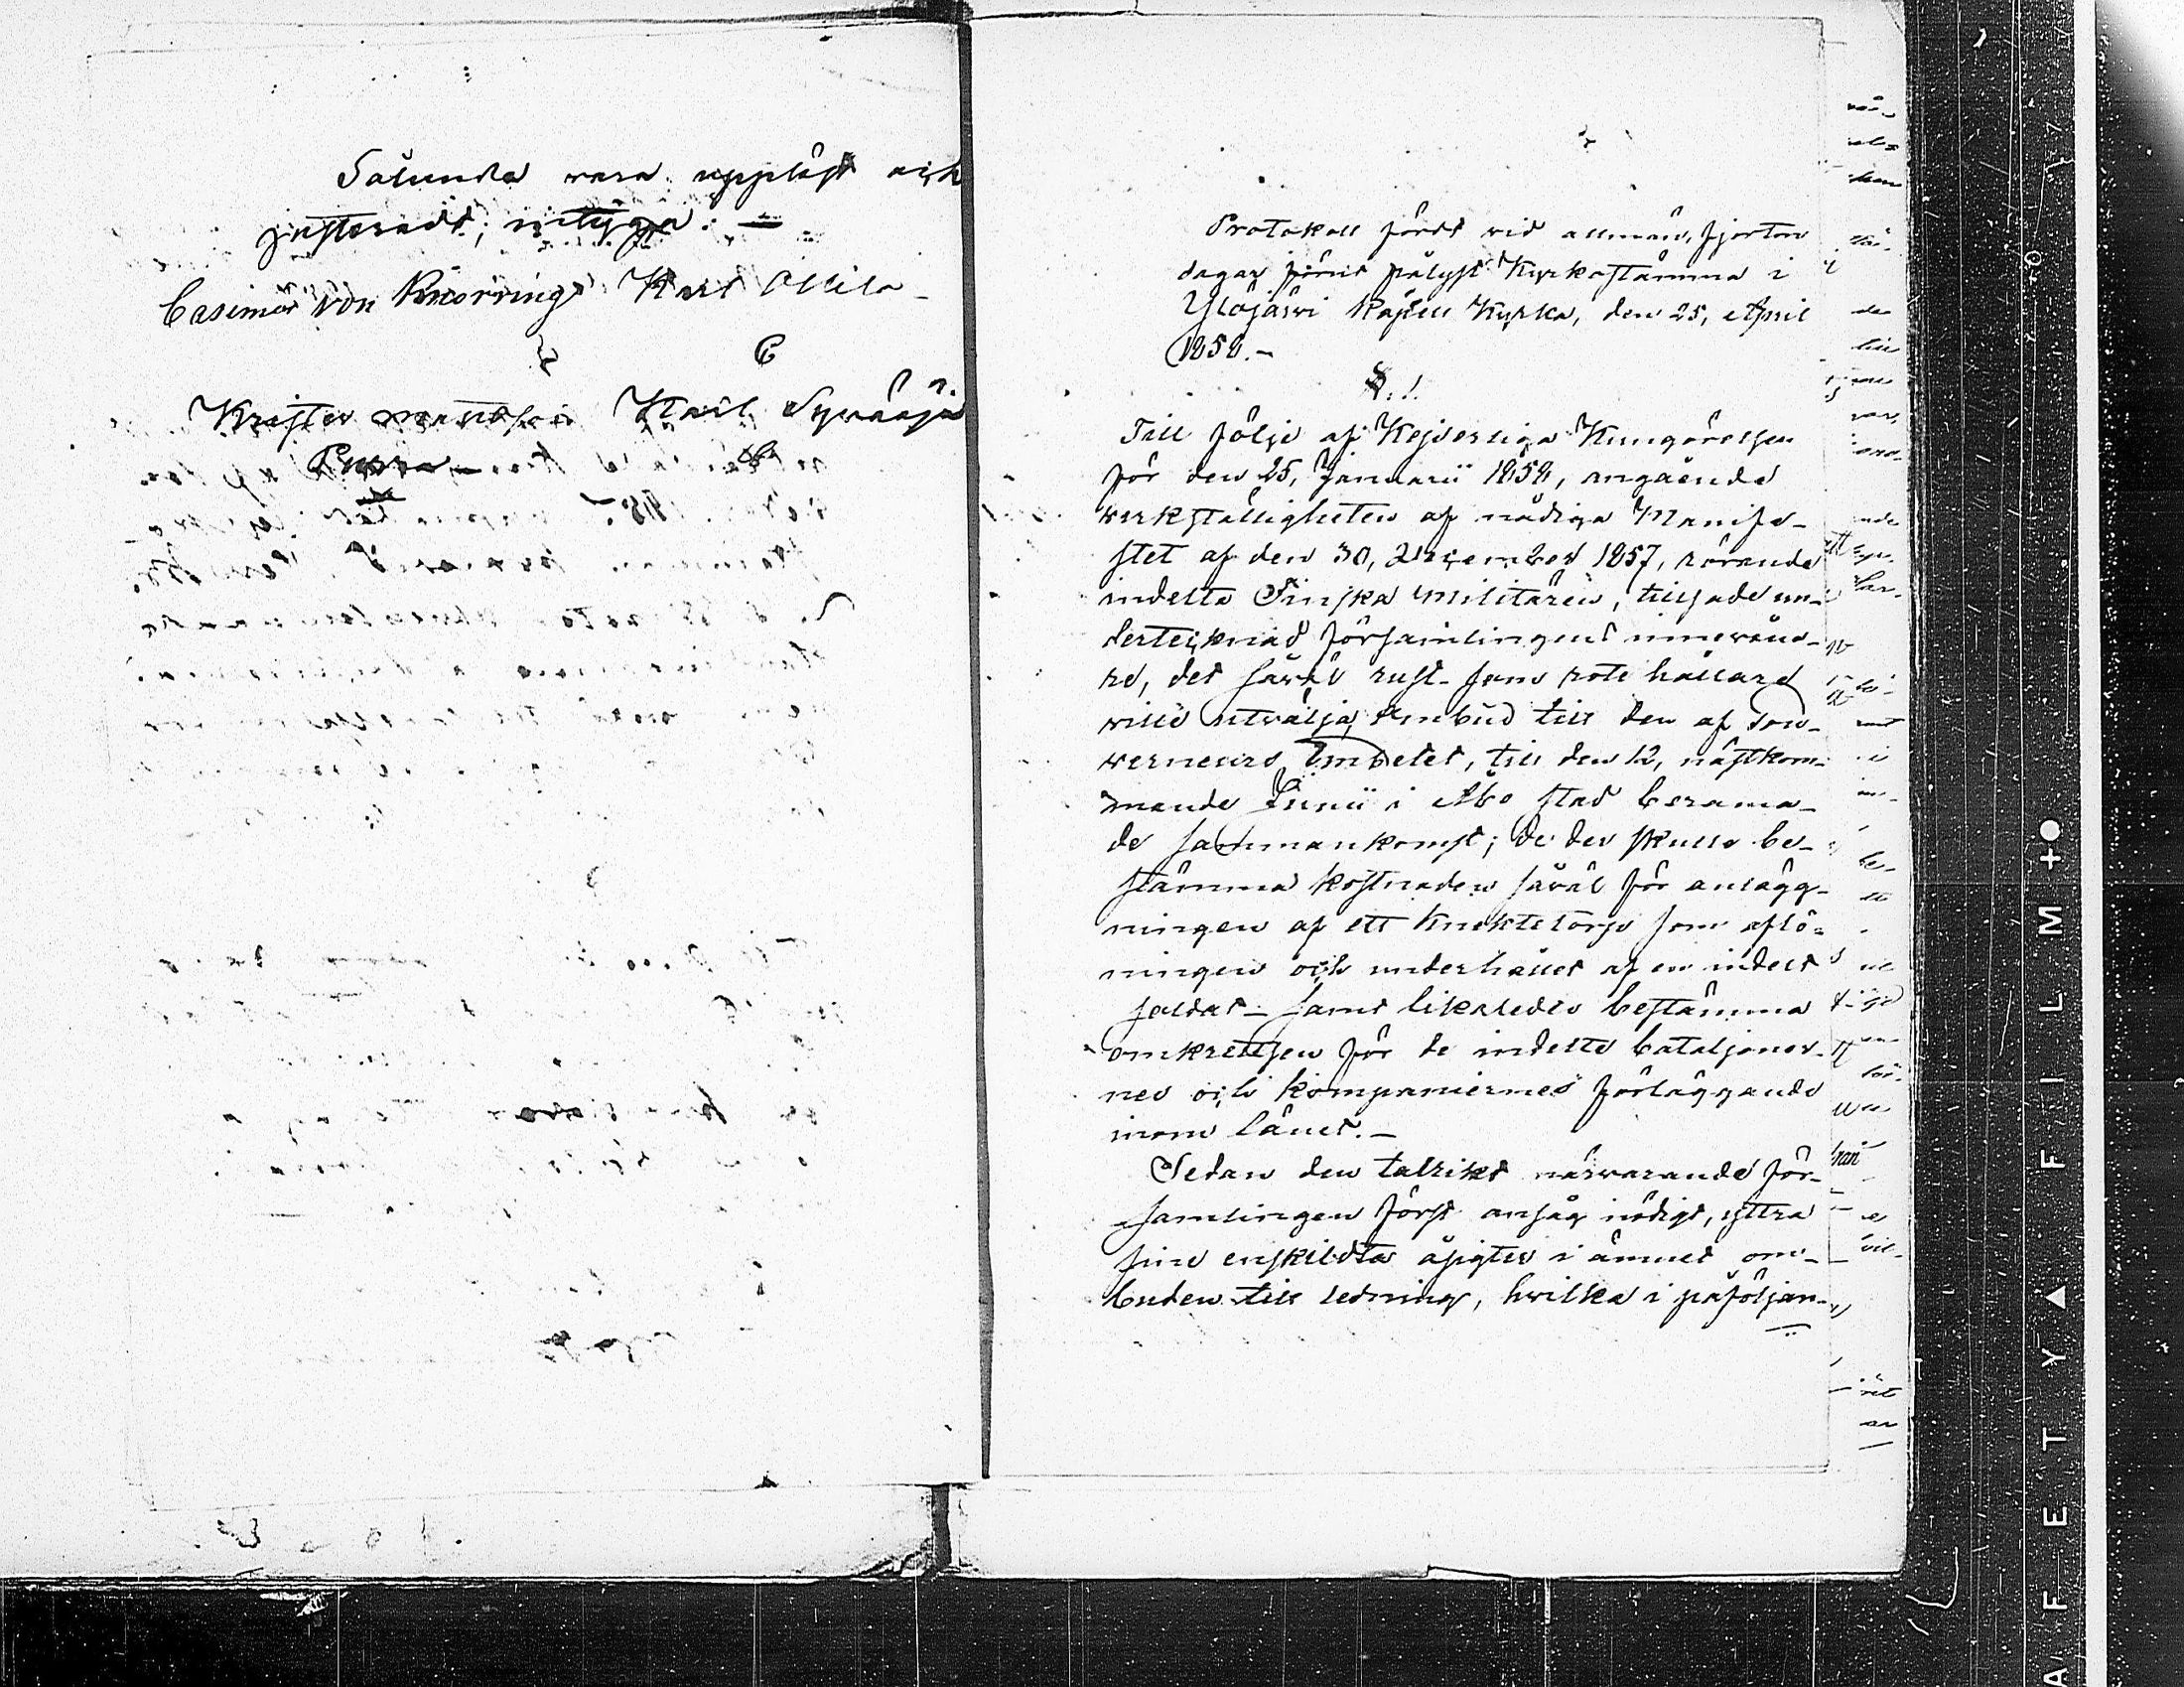 Sålunda vara uppläst och
justeradt, intyga: —
Casimir von Knorring Karl Ollila
Krister Mattsson Karl Sywäoja
Protokoll fördt vid allmän, fjorton
dagar förut pålyst Kyrkostämma i
Ylöjärvi Kapell Kyrka, den 25, April
1858. –
§. 1.
Till följe af Kejserliga Kungörelsen
för den 25, Januarii 1858, angående
verkställigheten af nådiga Manife-
stet af den 30, December 1857, rörande
indelta Finska militären, tillsade un-
dertecknad församlingens innevåna-
re, det såväl rust- som rote hållare
ville utvälja, ombud till den af Gou-
verneurs Embetet, till den 12, nästkom-
mande Junii i Åbo stad berama-
de sammankomst; de der skulle be-
stämma kostnaden såväl för anlägg-
ningen af ett knektetorp som aflö-
ningen och underhållet af en indelt
soldat – samt likaledes bestämma
omkretsen för de indelte bataljoner-
nes och kompaniernes förläggande
inom länet. –
Sedan den talrikt närvarande för-
samlingen först ansåg nödigt, yttra
sine enskildta åsigter i ämnet om-
buden till ledning, hvilka i påföljan-
A F E T Y ▲ F I L M